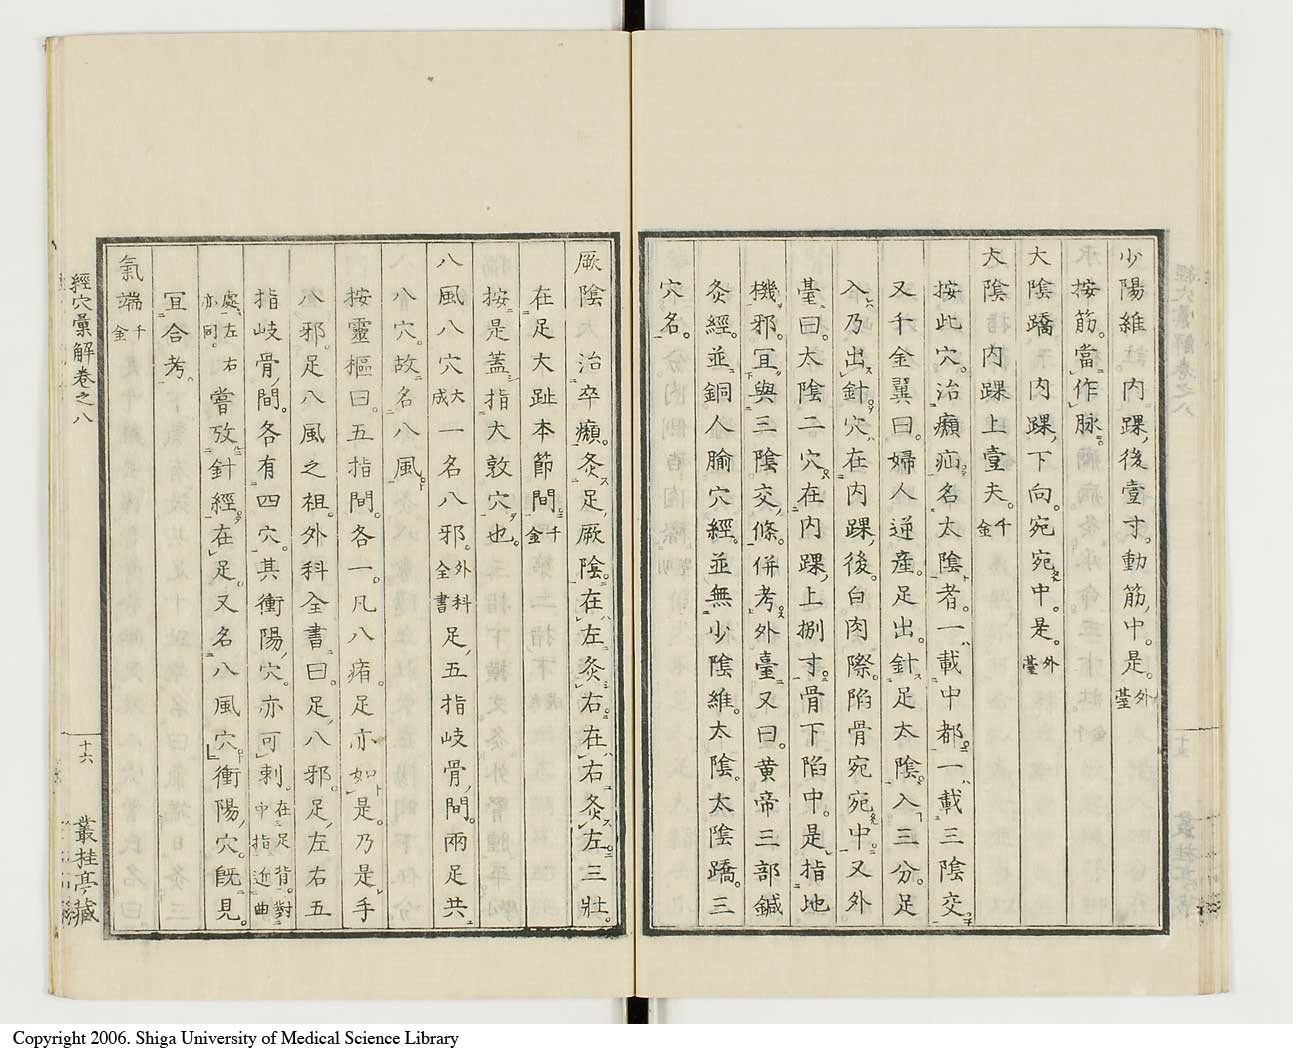 少陽維 内踝後壹寸。動筋中。是。外臺
按筋。當作脉。
大陰蹻 内踝下向。宛宛中。是。外臺
大陰 内踝上壹夫。千金
按此穴。治癩疝。名太陰者。一載中都。一載三陰交。
又千金翼曰。婦人逆産。足出。針足太陰。入三分。足
入乃出針。穴。在内踝後。白肉際。陷骨宛宛中。又外
臺曰。太陰二穴。在内踝上捌寸。骨下陷中。是指地
機邪。宜與三陰交條。併考。外臺又曰。黄帝三部鍼
灸經。並銅人腧穴經。並無少陰維。太陰。太陰蹻。三
穴名。
厥陰 治卒癩。灸足厥陰。在左灸右。在右灸左。三壯。
在足大趾本節間。千金
按是蓋指大敦穴也。
八風八穴 大成 一名八邪。外科全書 足五指岐骨間。兩足共
八穴。故名八風。
按靈樞曰。五指間。各一。凡八痏。足亦如是。乃是手
八邪。足八風之祖。外科全書曰。足八邪。足左右五
指岐骨間。各有四穴。其衝陽穴。亦可刺。在足背。對中指近曲
處。左右亦同。 嘗攷針經。在足。又名八風穴。衝陽穴。既見。
宜合考。
氣端 千金
經穴彙解卷之八
十六
叢桂亭藏